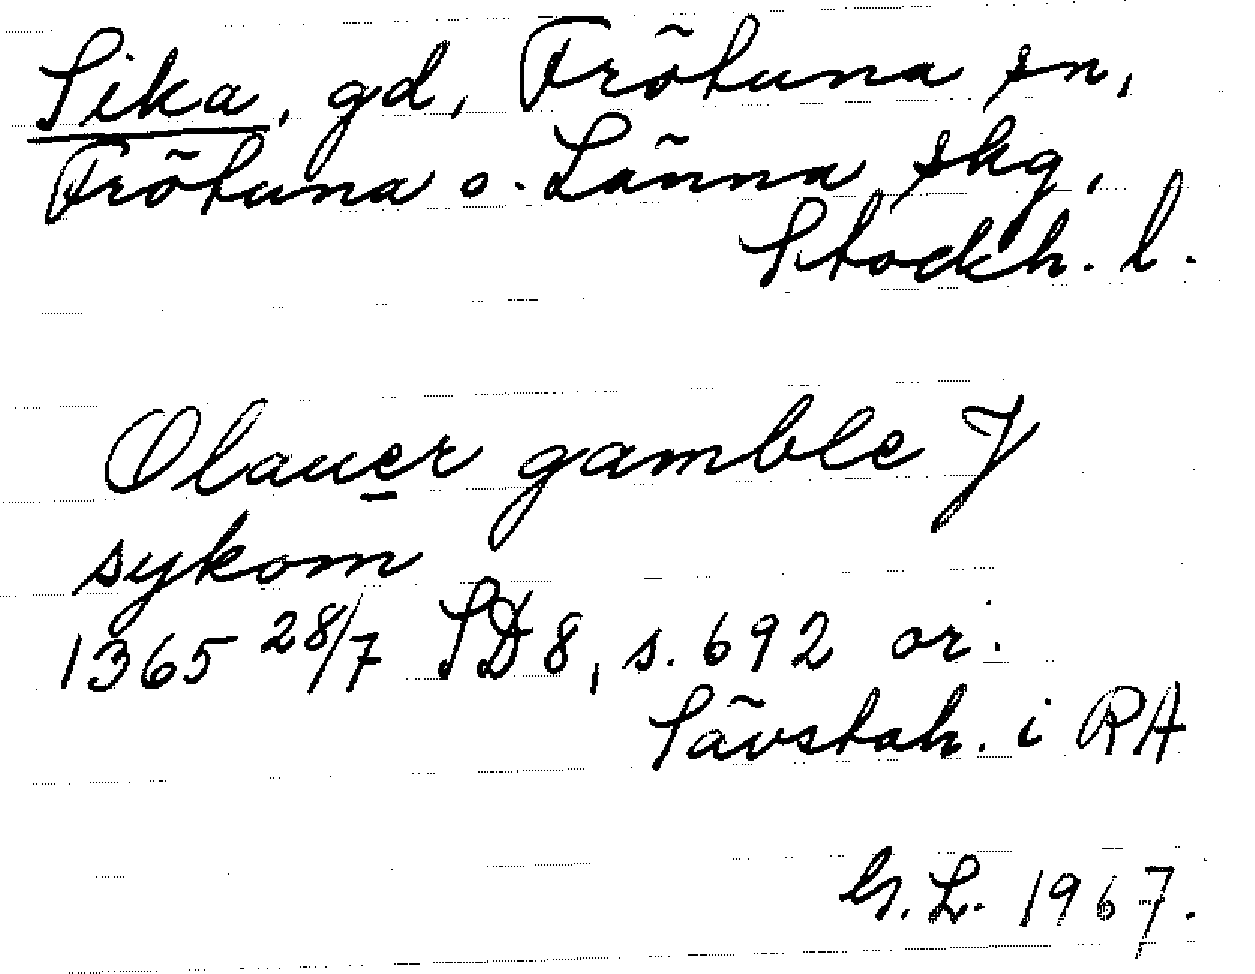 Sika, gd, Frötuna sn,
Frötuna o. Länna skg,
Stockh. l.
Olauer gamble J
sykom
1365 28/7 SD8, s. 692 or.
Sävstah. i RA
G.L. 1967.